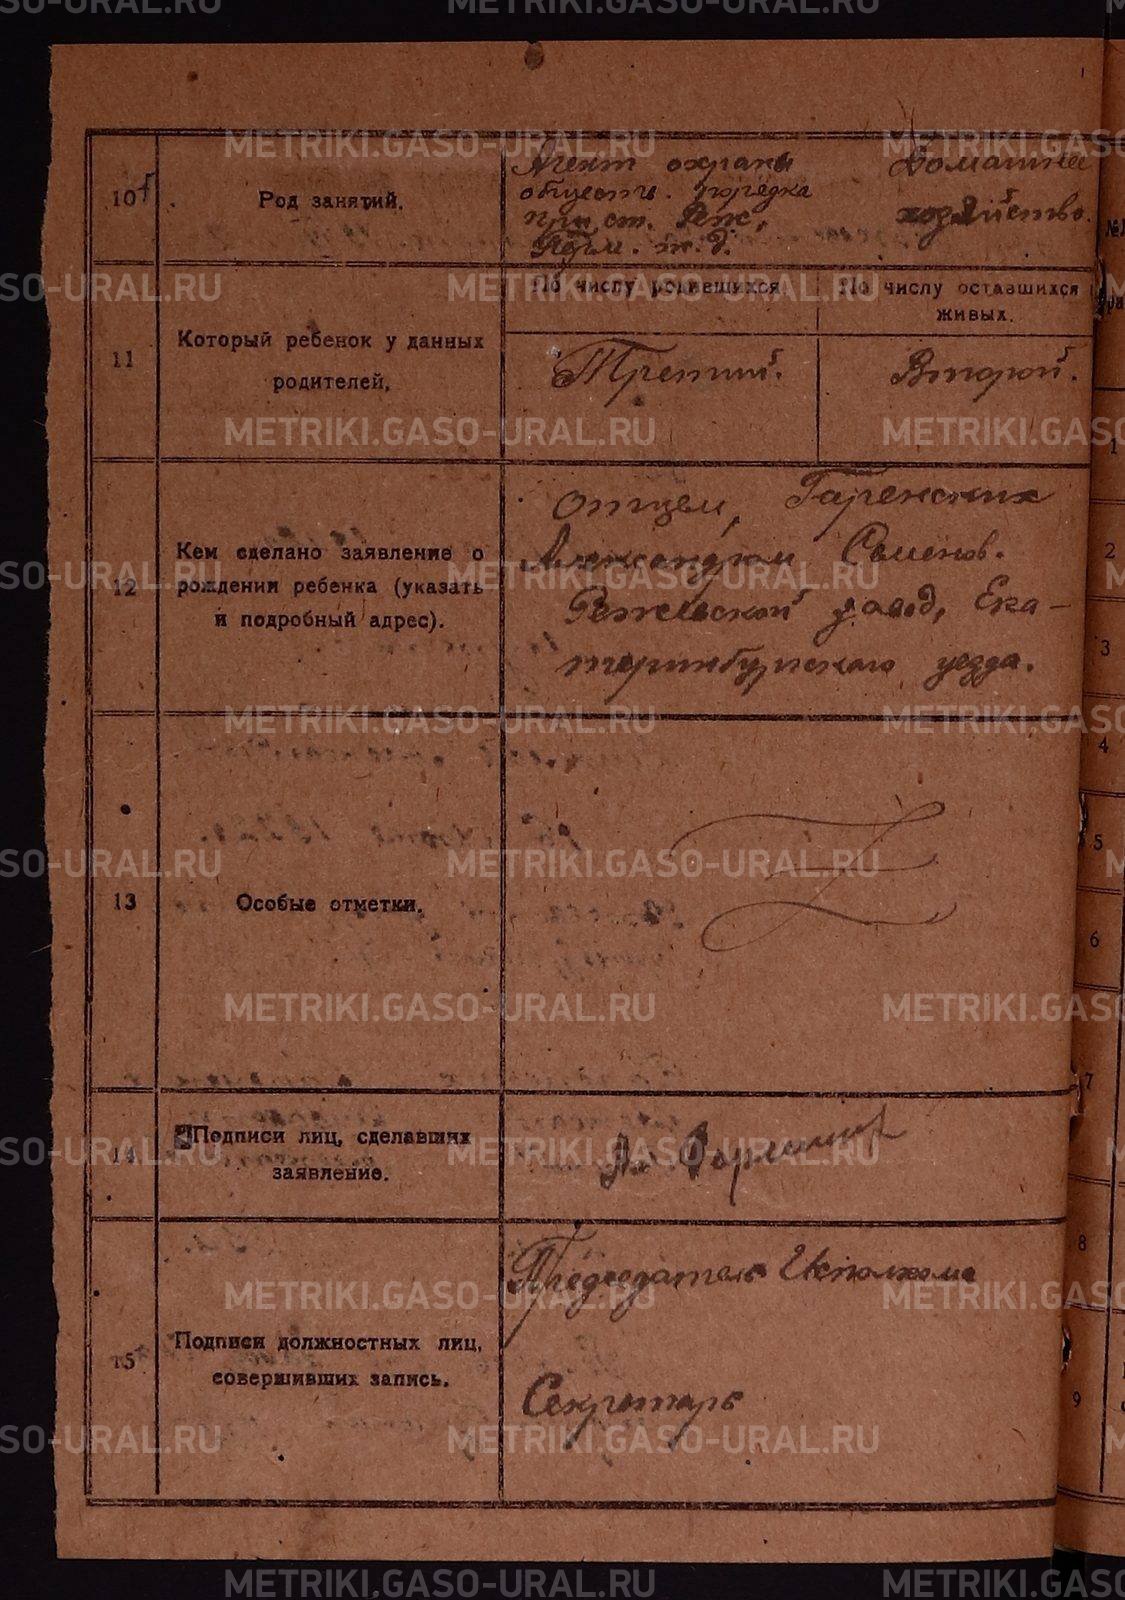 METRIKI.GASO-URAL.RU
10
Род занятий.
Агент охраны
обществ. порядка
при ст. Реж,
ж. д.
Домашнее
хозяйство.
11
Который ребенок у данных
родителей.
По числу родившихся
По числу оставшихся
живых.
Третий.
Второй.
12
Кем сделано заявление о
рождении ребенка (указать
и подробный адрес).
Отцем,
Александром Семенов.
Режевской завод, Ека-
теринбургского уезда.
13
Особые отметки.
14
Подписи лиц, сделавших
заявление.
15
Подписи должностных лиц,
совершивших запись.
Председатель Исполкома
Секретарь
1
2
3
4
5
6
7
8
9